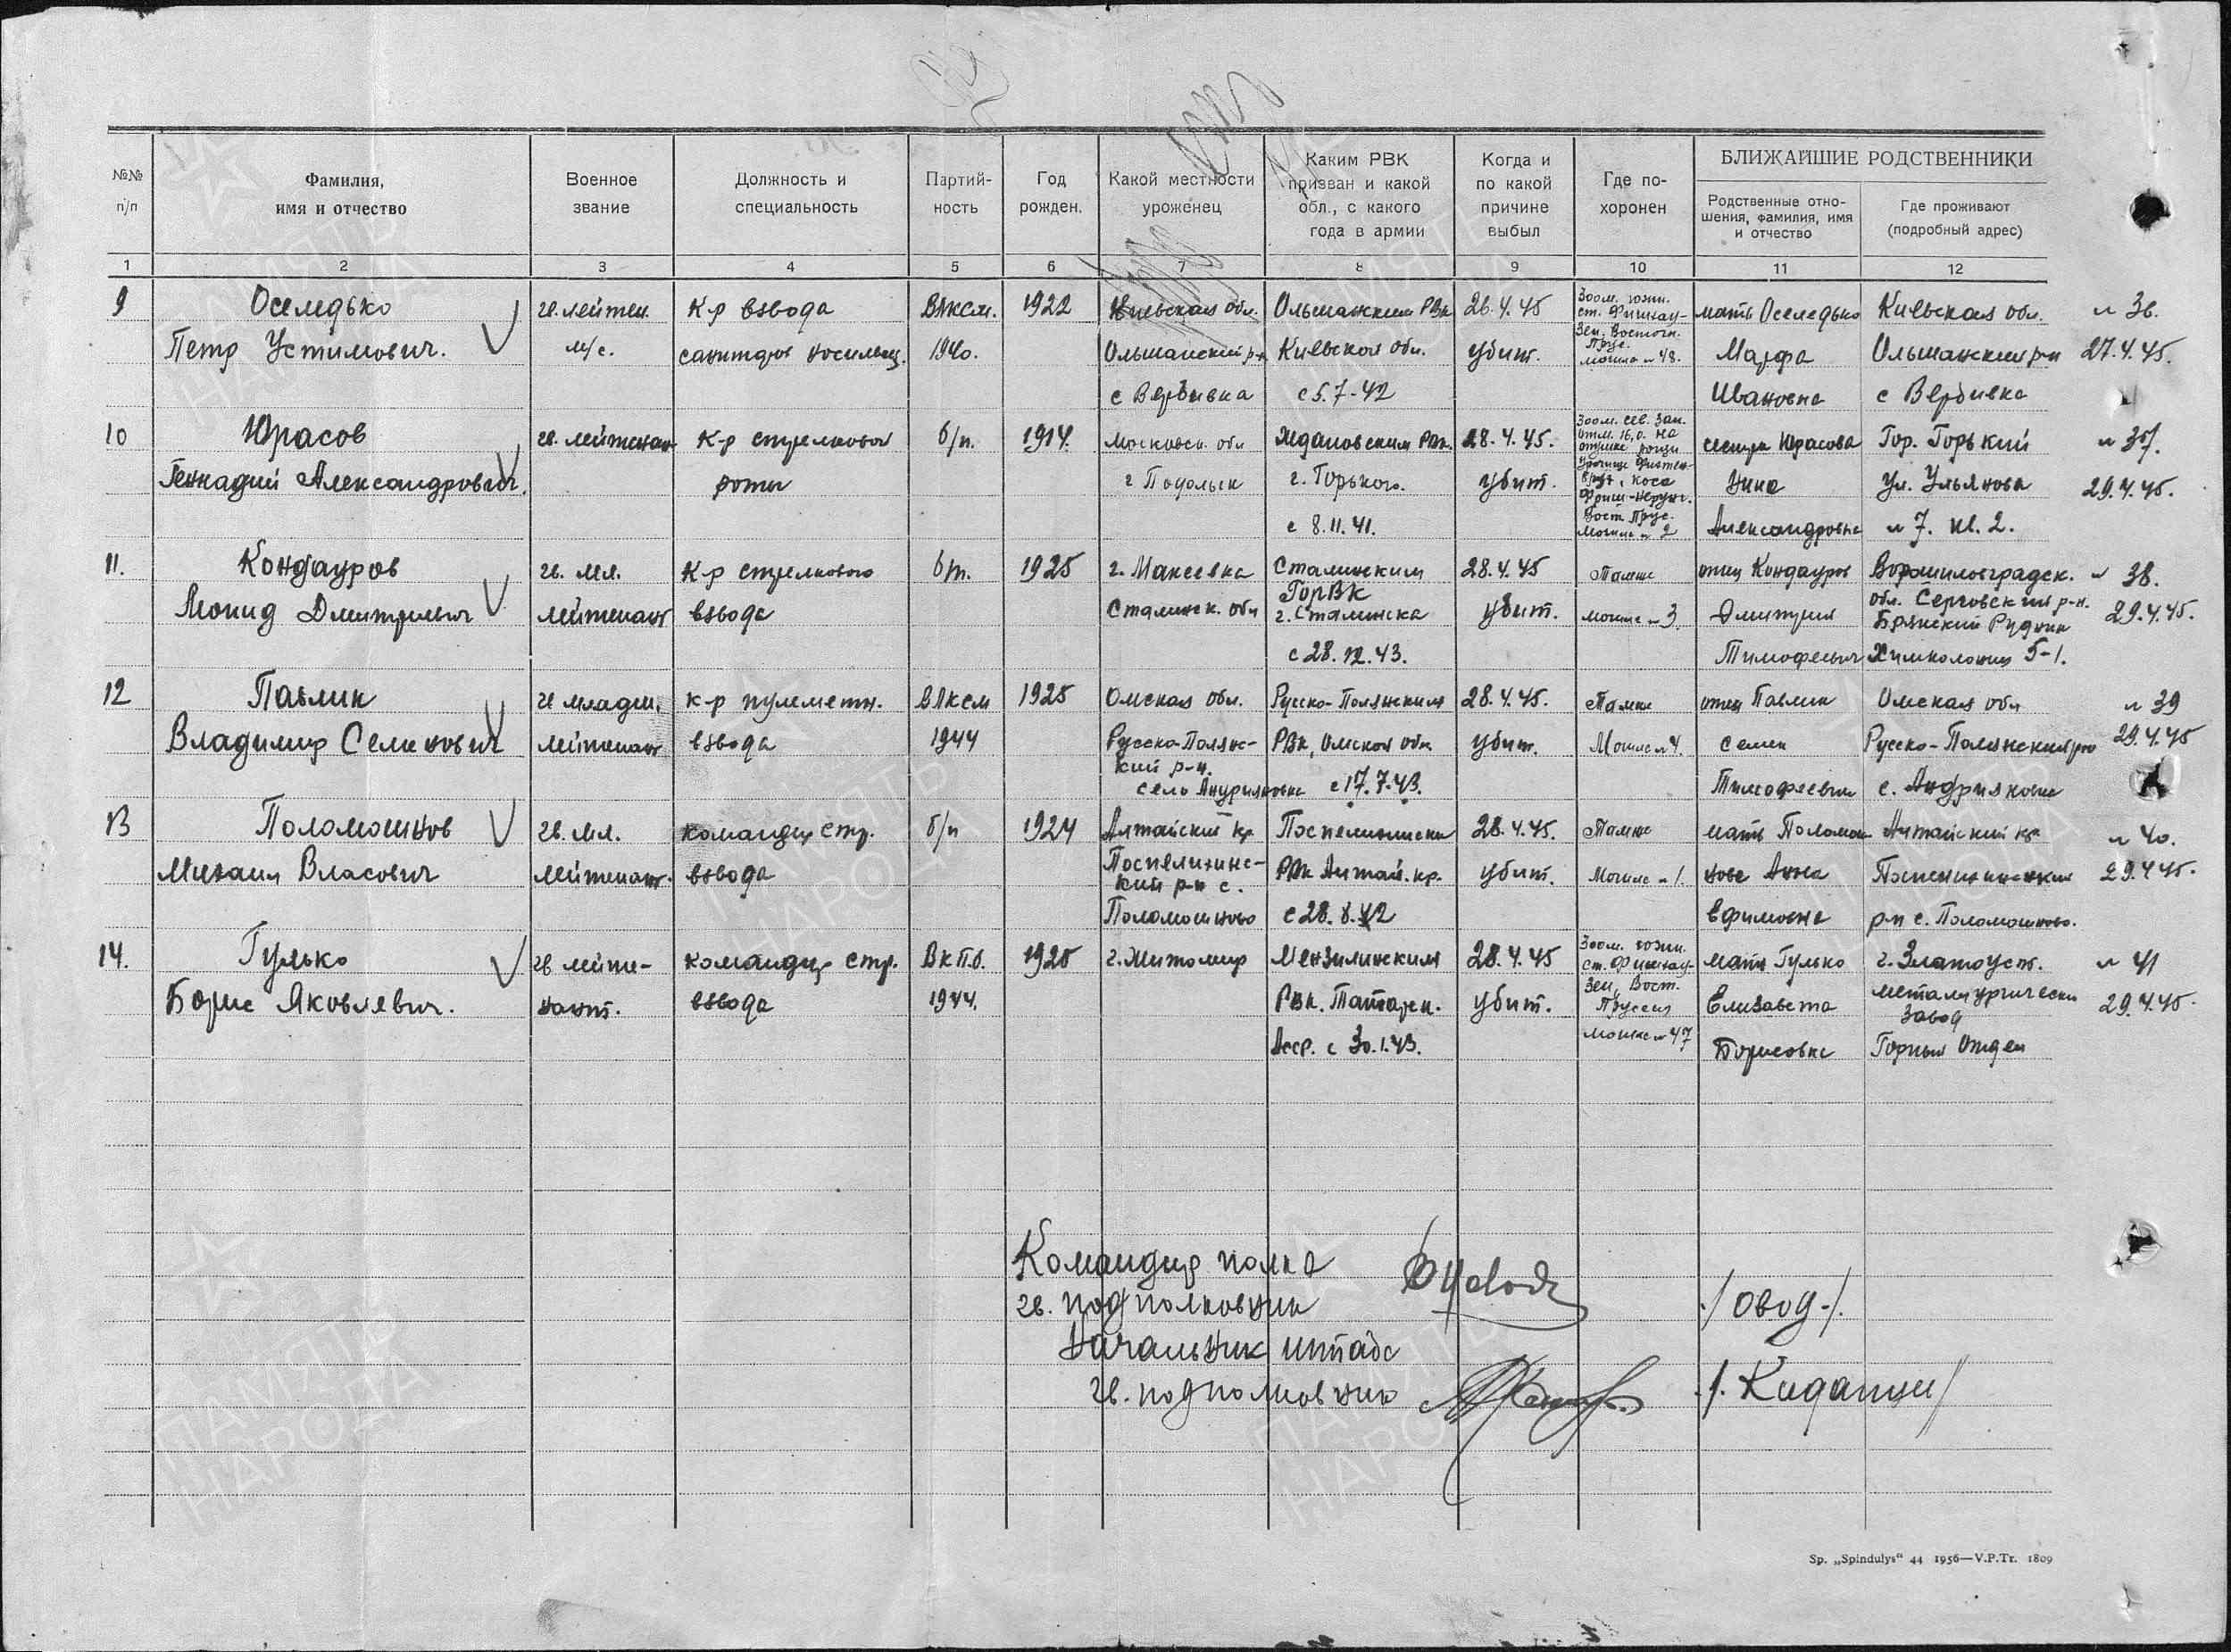 №№ п/п
Фамилия, имя и отчество
Военное звание
Должность и специальность
Партий-ность
Год рожден.
Какой местности уроженец
Каким РВК призван и какой обл., с какого года в армии
Когда и по какой причине выбыл
Где по-хоронен
БЛИЖАЙШИЕ РОДСТВЕННИКИ
Родственные отно-шения, фамилия, имя и отчество
Где проживают (подробный адрес)
1 2 3 4 5 6 7 8 9 10 11 12
9 Оселедько гв. лейтен. К-р взвода ВЛКСМ. 1922 Киевская обл. Ольшанским РВК 26.4.45 300м. южн. ст. мать Оселедько Киевская обл. 36.
Петр Устимович. м/с. санитаров носильщ. 1940. Ольшанский р-н Киевской обл. убит. могила 48. Марфа Ольшанский р-н 27.4.45.
с Вербивка с 5.7-42 Ивановна с Вербивка
10 Юрасов гв. лейтенант К-р стрелковой б/п. 1914. Московск. обл Ждановским РВК. 28.4.45. 300м. сев. зап. отм. 16,0. на опушке рощи сестра Юрасова Гор. Горький 37.
Геннадий Александрович. роты г Подольск г. Горького. убит. коса Нина ул. Ульянова 29.4.45.
с 8.11.41. Вост. Прус. могила 2 Александровна 7. кв. 2.
11. Кондауров гв. мл. К-р стрелкового б/п. 1925 г. Макеевка Сталинским ГорВК 28.4.45 Тамже отец Кондауров Ворошиловградск. 38.
Леонид Дмитриевич лейтенант взвода Сталинск. обл г. Сталинска убит. могила 3. Дмитрий обл. р-н. Брянский Рудник 29.4.45.
с 28.12.43. Тимофеевич Химколония 5-1.
12 Павлик гв младш. к-р пулеметн. ВЛКСМ 1925 Омская обл. Русско-Полянским 28.4.45. Тамже отец Павлик Омская обл 39
Владимир Семенович лейтенант взвода 1944 Русско-Полянс-кий р-н. РВК, Омской обл убит. Могила 4. Семен Русско-Полянский р-н 29.4.45
село Андриановка с 17.7.43. Тимофеевич с. Андриановка
13 Поломошнов гв. мл. командир стр. б/п 1924 Алтайский кр. 28.4.45. Тамже мать Поломош Алтайский кр 40.
Михаил Власович лейтенант. взвода Поспелихинс-кий р-н с. РВК Алтай. кр. убит. Могила 1. нова Анна Поспелихинский 29.4.45.
Поломошново с 28.8.42 Ефимовна р-н с. Поломошново.
14. Гулько гв лейте- командир стр. ВКП.б. 1925 г. Житомир Мензилинским 28.4.45 300м. южн. ст. мать Гулько г. Златоуст. 41
Борис Яковлевич. нант. взвода 1944. РВК. Татарск. убит. Вост. Пруссия Елизавета металлургически завод 29.4.45.
Асср. с 30.1.43. могила 47 Борисовна Горный Отдел
Командир полка
гв. подполковник /Овод./.
Начальник штаба
гв. подполковник
Sp. „Spindulys“ 44 1956—V.P.Tr. 1809
ПАМЯТЬ НАРОДА